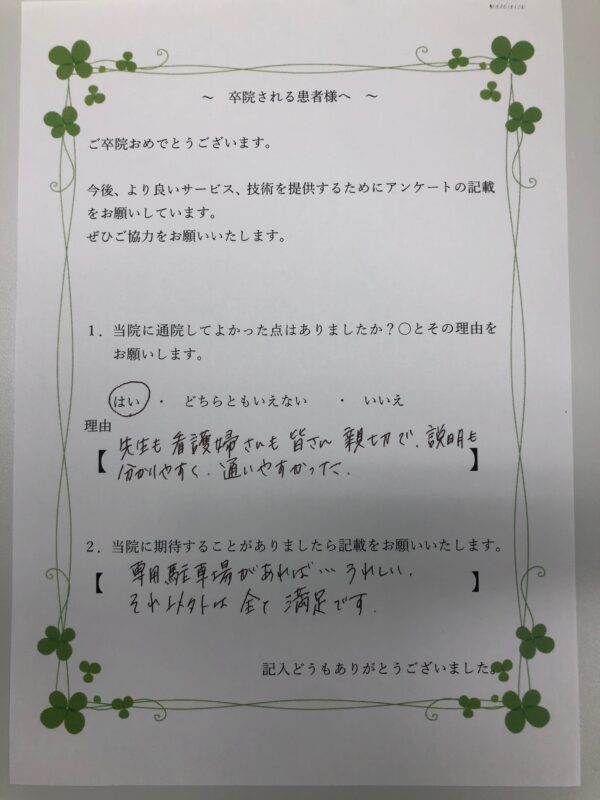 ～　卒院される患者様へ　～
ご卒院おめでとうございます。
今後、より良いサービス、技術を提供するためにアンケートの記載
をお願いしています。
ぜひご協力をお願いいたします。
１．当院に通院してよかった点はありましたか？○とその理由を
お願いします。
はい　・　どちらともいえない　　・　いいえ
理由
【先生も看護婦さんも皆さん親切で、説明も
分かりやすく、通いやすかった。】
２．当院に期待することがありましたら記載をお願いいたします。
【専用駐車場があれば…うれしい。】
それ以外は全て満足です。
記入どうもありがとうございました。